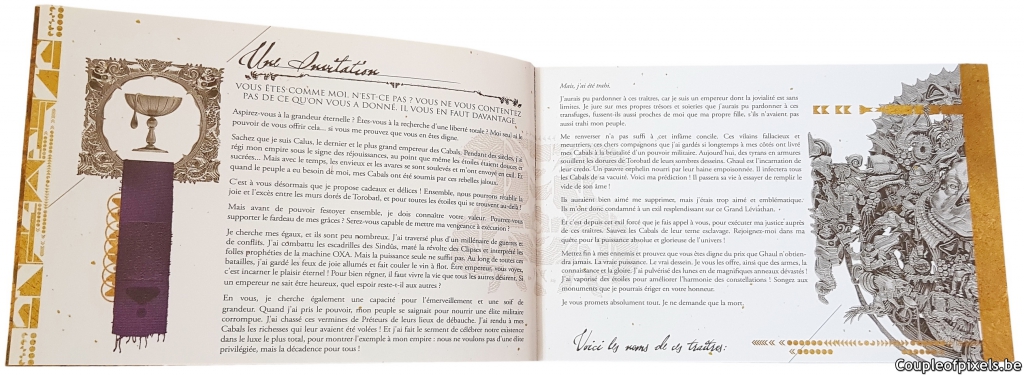 Une Invitation
VOUS ÊTES COMME MOI, N'EST-CE PAS ? VOUS NE VOUS CONTENTEZ
PAS DE CE QU'ON VOUS A DONNÉ. IL VOUS EN FAUT DAVANTAGE.
Aspirez-vous à la grandeur éternelle ? Êtes-vous à la recherche d'une liberté totale ? Moi seul ai le
pouvoir de vous offrir cela... si vous me prouvez que vous en êtes digne.
Sachez que je suis Calus, le dernier et le plus grand empereur des Cabals. Pendant des siècles, j'ai
régi mon empire sous le signe des réjouissances, au point que même les étoiles étaient douces et
sucrées... Mais avec le temps, les envieux et les avares se sont soulevés et m'ont envoyé en exil. Et
quand le peuple a eu besoin de moi, mes Cabals ont été soumis par ces rebelles jaloux.
C'est à vous désormais que je propose cadeaux et délices ! Ensemble, nous pourrons rétablir la
joie et l'excès entre les murs dorés de Torobad, et pour toutes les étoiles qui se trouvent au-delà !
Mais avant de pouvoir festoyer ensemble, je dois connaître votre valeur. Pourrez-vous
supporter le fardeau de mes grâces ? Serez-vous capable de mettre ma vengeance à exécution ?
Je cherche mes égaux, et ils sont peu nombreux. J'ai traversé plus d'un millénaire de guerres et
de conflits. J'ai combattu les escadrilles des Sindûs, maté la révolte des Clipses et interprété les
folles prophéties de la machine OXA. Mais la puissance seule ne suffit pas. Au long de toutes ces
batailles, j'ai gardé les feux de joie allumés et fait couler le vin à flot. Être empereur, vous voyez,
c'est incarner le plaisir éternel ! Pour bien régner, il faut vivre la vie que tous les autres désirent. Si
un empereur ne sait être heureux, quel espoir reste-t-il aux autres ?
En vous, je cherche également une capacité pour l'émerveillement et une soif de
grandeur. Quand j'ai pris le pouvoir, mon peuple se saignait pour nourrir une élite militaire
corrompue. J'ai chassé ces vermines de Préteurs de leurs lieux de débauche. J'ai rendu à mes
Cabals les richesses qui leur avaient été volées ! Et j'ai fait le serment de célébrer notre existence
dans le luxe le plus total, pour montrer l'exemple à mon empire : nous ne voulons pas d'une élite
privilégiée, mais la décadence pour tous !
Mais, j'ai été trahi.
J'aurais pu pardonner à ces traîtres, car je suis un empereur dont la jovialité est sans
limites. Je jure sur mes propres trésors et soieries que j'aurais pu pardonner à ces
transfuges, fussent-ils aussi proches de moi que ma propre fille, s'ils n'avaient pas
aussi trahi mon peuple.
Me renverser n'a pas suffi à cet infâme concile. Ces vilains fallacieux et
meurtriers, ces chers compagnons que j'ai gardés si longtemps à mes côtés ont livré
mes Cabals à la brutalité d'un pouvoir militaire. Aujourd'hui, des tyrans en armures
souillent les dorures de Torobad de leurs sombres desseins. Ghaul est l'incarnation de
leur credo. Un pauvre orphelin nourri par leur haine empoisonnée. Il infectera tous
les Cabals de sa vacuité. Voici ma prédiction ! Il passera sa vie à essayer de remplir le
vide de son âme !
Ils auraient bien aimé me supprimer, mais j'étais trop aimé et emblématique.
Ils m'ont donc condamné à un exil resplendissant sur ce Grand Léviathan.
Et c'est depuis cet exil forcé que je fais appel à vous, pour exécuter ma justice auprès
de ces traîtres. Sauvez les Cabals de leur terne esclavage. Rejoignez-moi dans ma
quête pour la puissance absolue et glorieuse de l'univers !
Mettez fin à mes ennemis et prouvez que vous êtes digne du prix que Ghaul n'obtien-
dra jamais. La vraie puissance. Le vrai dessein. Je vous les offre, ainsi que des armes, la
connaissance et la gloire. J'ai pulvérisé des lunes et de magnifiques anneaux dévastés !
J'ai vaporisé des étoiles pour améliorer l'harmonie des constellations ! Songez aux
monuments que je pourrais ériger en votre honneur.
Je vous promets absolument tout. Je ne demande que la mort.
Voici les noms de ces traîtres:
Coupleofpixels.be